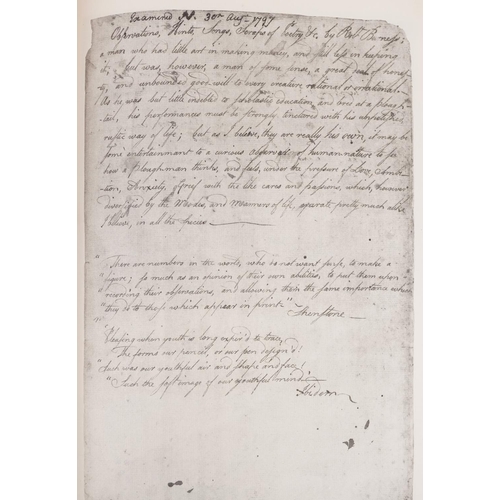 Examined N. 30th Augt 1797
Observations, Hints, Songs, Scraps of Poetry &c. by Robt Burness;
a man who had little art in making money, and still less in keeping
it; but was, however, a man of some sense, a great deal of hones-
ty, and unbounded good will to every creature rational or irrational.
As he was but little indebted to scholastic education, and bred at a plough
tail, his performances must be strongly tinctured with his unpolished
rustic way of life; but as I believe, they are really his own, it may be
some entertainment to a curious observer of human-nature to see
how a Ploughman thinks, and feels, under the pressure of Love, Ambi-
tion, Anxiety, Grief with the like cares and passions, which, however
diversified by the Modes, and Manners of life, operate pretty much alike
I believe, in all the Species
"There are numbers in the world, who do not want sense, to make a
figure; so much as an opinion of their own abilities, to put them upon
recording their observations, and allowing them the same importance which
"they do to those which appear in print."
Shenstone
"Pleasing when youth is long expir'd to trace,
The forms our pencil, or our pen design'd!
"Such was our youthful air and shape and face!
"Such the soft image of our youthful mind."
Ibidem